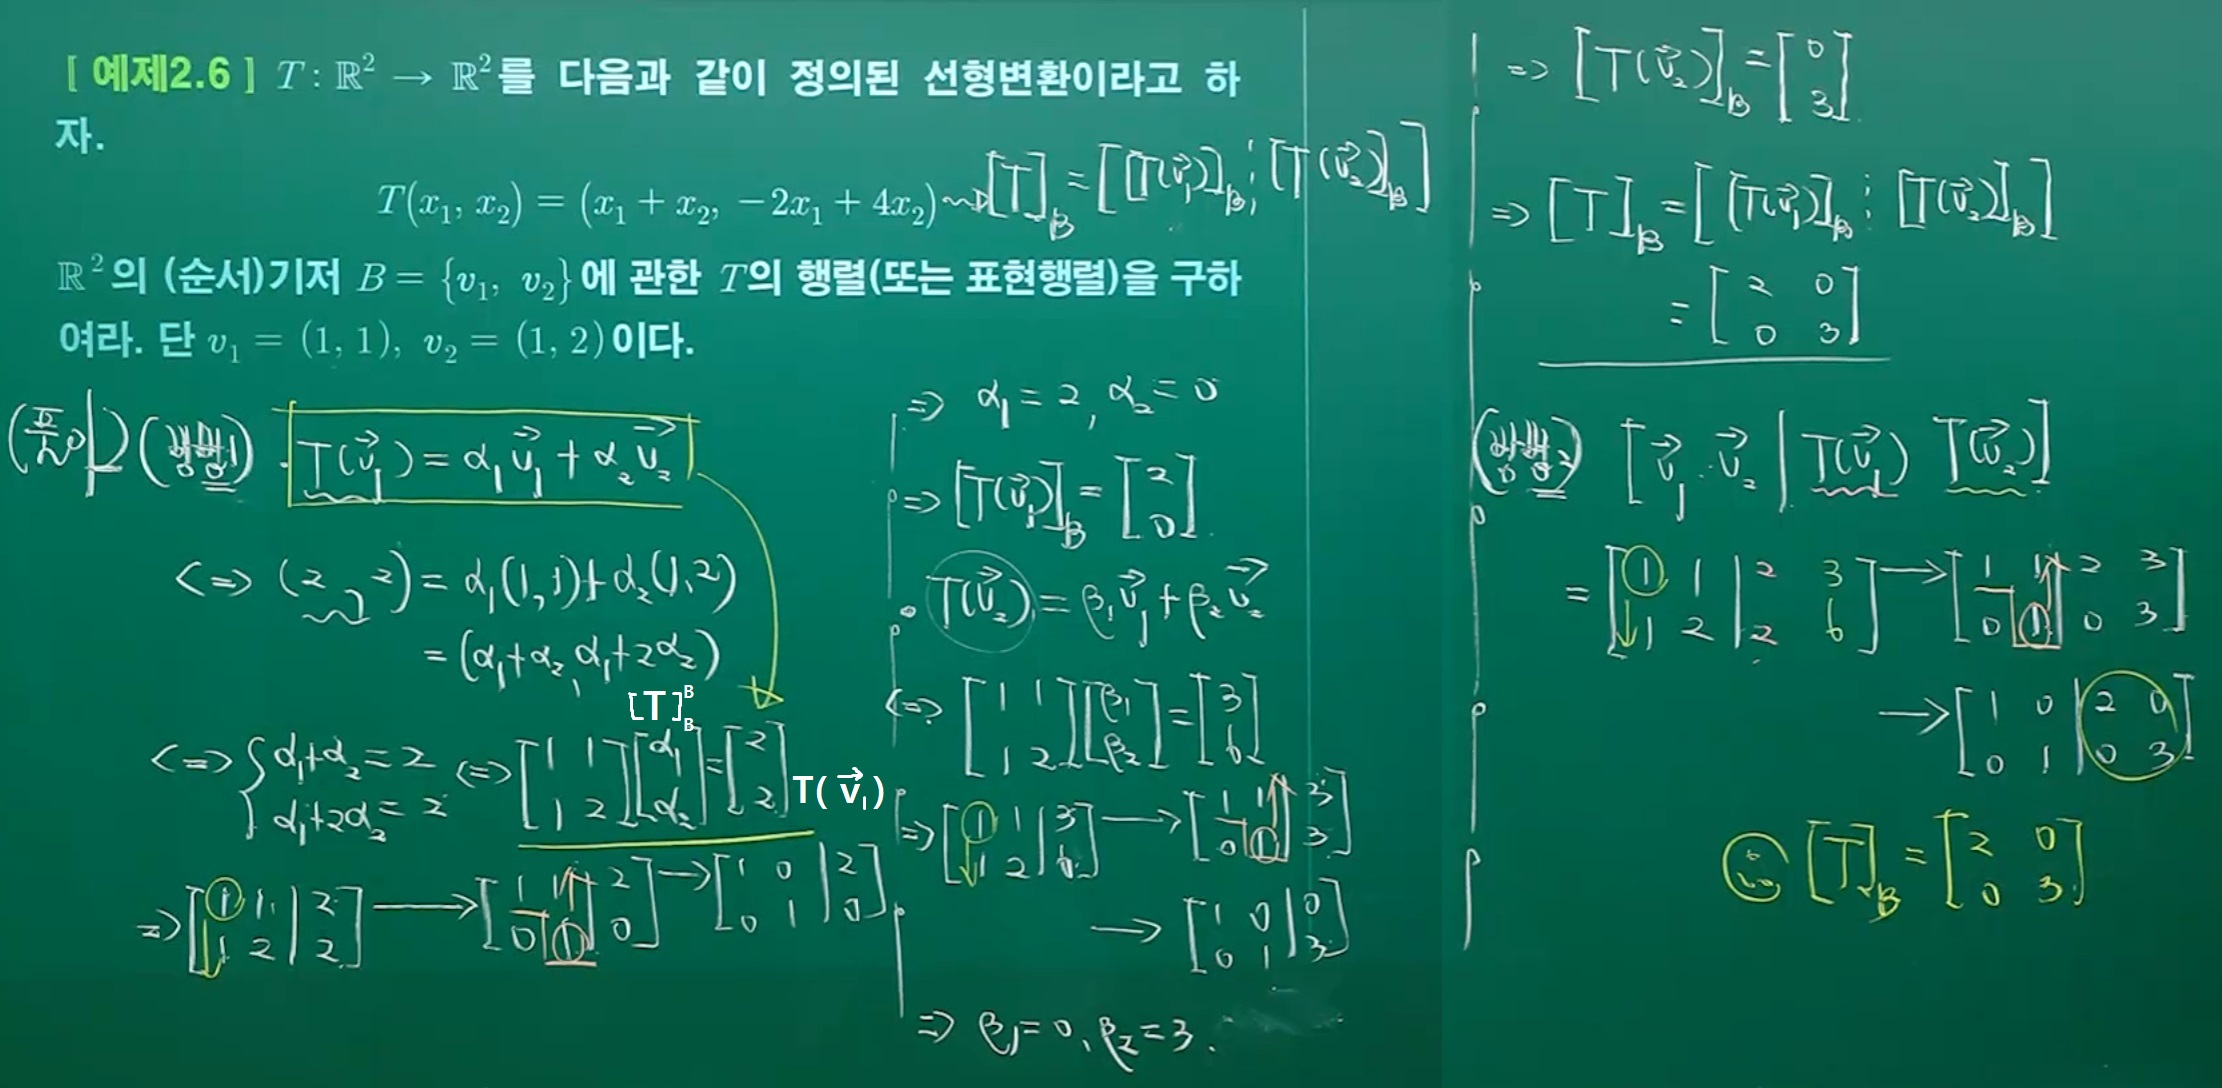 [ 예제2.6 ] T : ℝ² → ℝ²를 다음과 같이 정의된 선형변환이라고 하
자.
T(x₁, x₂) = (x₁ + x₂, −2x₁ + 4x₂) ⇝ [T]_B = [[T(v⃗₁)]_B ⋮ [T(v⃗₂)]_B]
ℝ²의 (순서)기저 B = {v₁, v₂}에 관한 T의 행렬(또는 표현행렬)을 구하
여라. 단 v₁ = (1, 1), v₂ = (1, 2)이다.
(풀이) (방법1) · T(v⃗₁) = α₁v⃗₁ + α₂v⃗₂
<=> (2, 2) = α₁(1,1) + α₂(1,2)
= (α₁+α₂, α₁+2α₂)
[T]_B^B
<=> { α₁+α₂ = 2, α₁+2α₂ = 2 <=> [1 1; 1 2][α₁; α₂] = [2; 2] T(v⃗₁)
=> [1 1 | 2; 1 2 | 2] → [1 1 | 2; 0 1 | 0] → [1 0 | 2; 0 1 | 0]
=> α₁ = 2, α₂ = 0
=> [T(v⃗₁)]_B = [2; 0]
· T(v⃗₂) = β₁v⃗₁ + β₂v⃗₂
<=> [1 1; 1 2][β₁; β₂] = [3; 6]
=> [1 1 | 3; 1 2 | 6] → [1 1 | 3; 0 1 | 3]
→ [1 0 | 0; 0 1 | 3]
=> β₁ = 0, β₂ = 3.
=> [T(v⃗₂)]_B = [0; 3]
=> [T]_B = [[T(v⃗₁)]_B ⋮ [T(v⃗₂)]_B]
= [2 0; 0 3]
(방법2) [v⃗₁ v⃗₂ | T(v⃗₁) T(v⃗₂)]
= [1 1 | 2 3; 1 2 | 2 6] → [1 1 | 2 3; 0 1 | 0 3]
→ [1 0 | 2 0; 0 1 | 0 3]
∴ [T]_B = [2 0; 0 3]